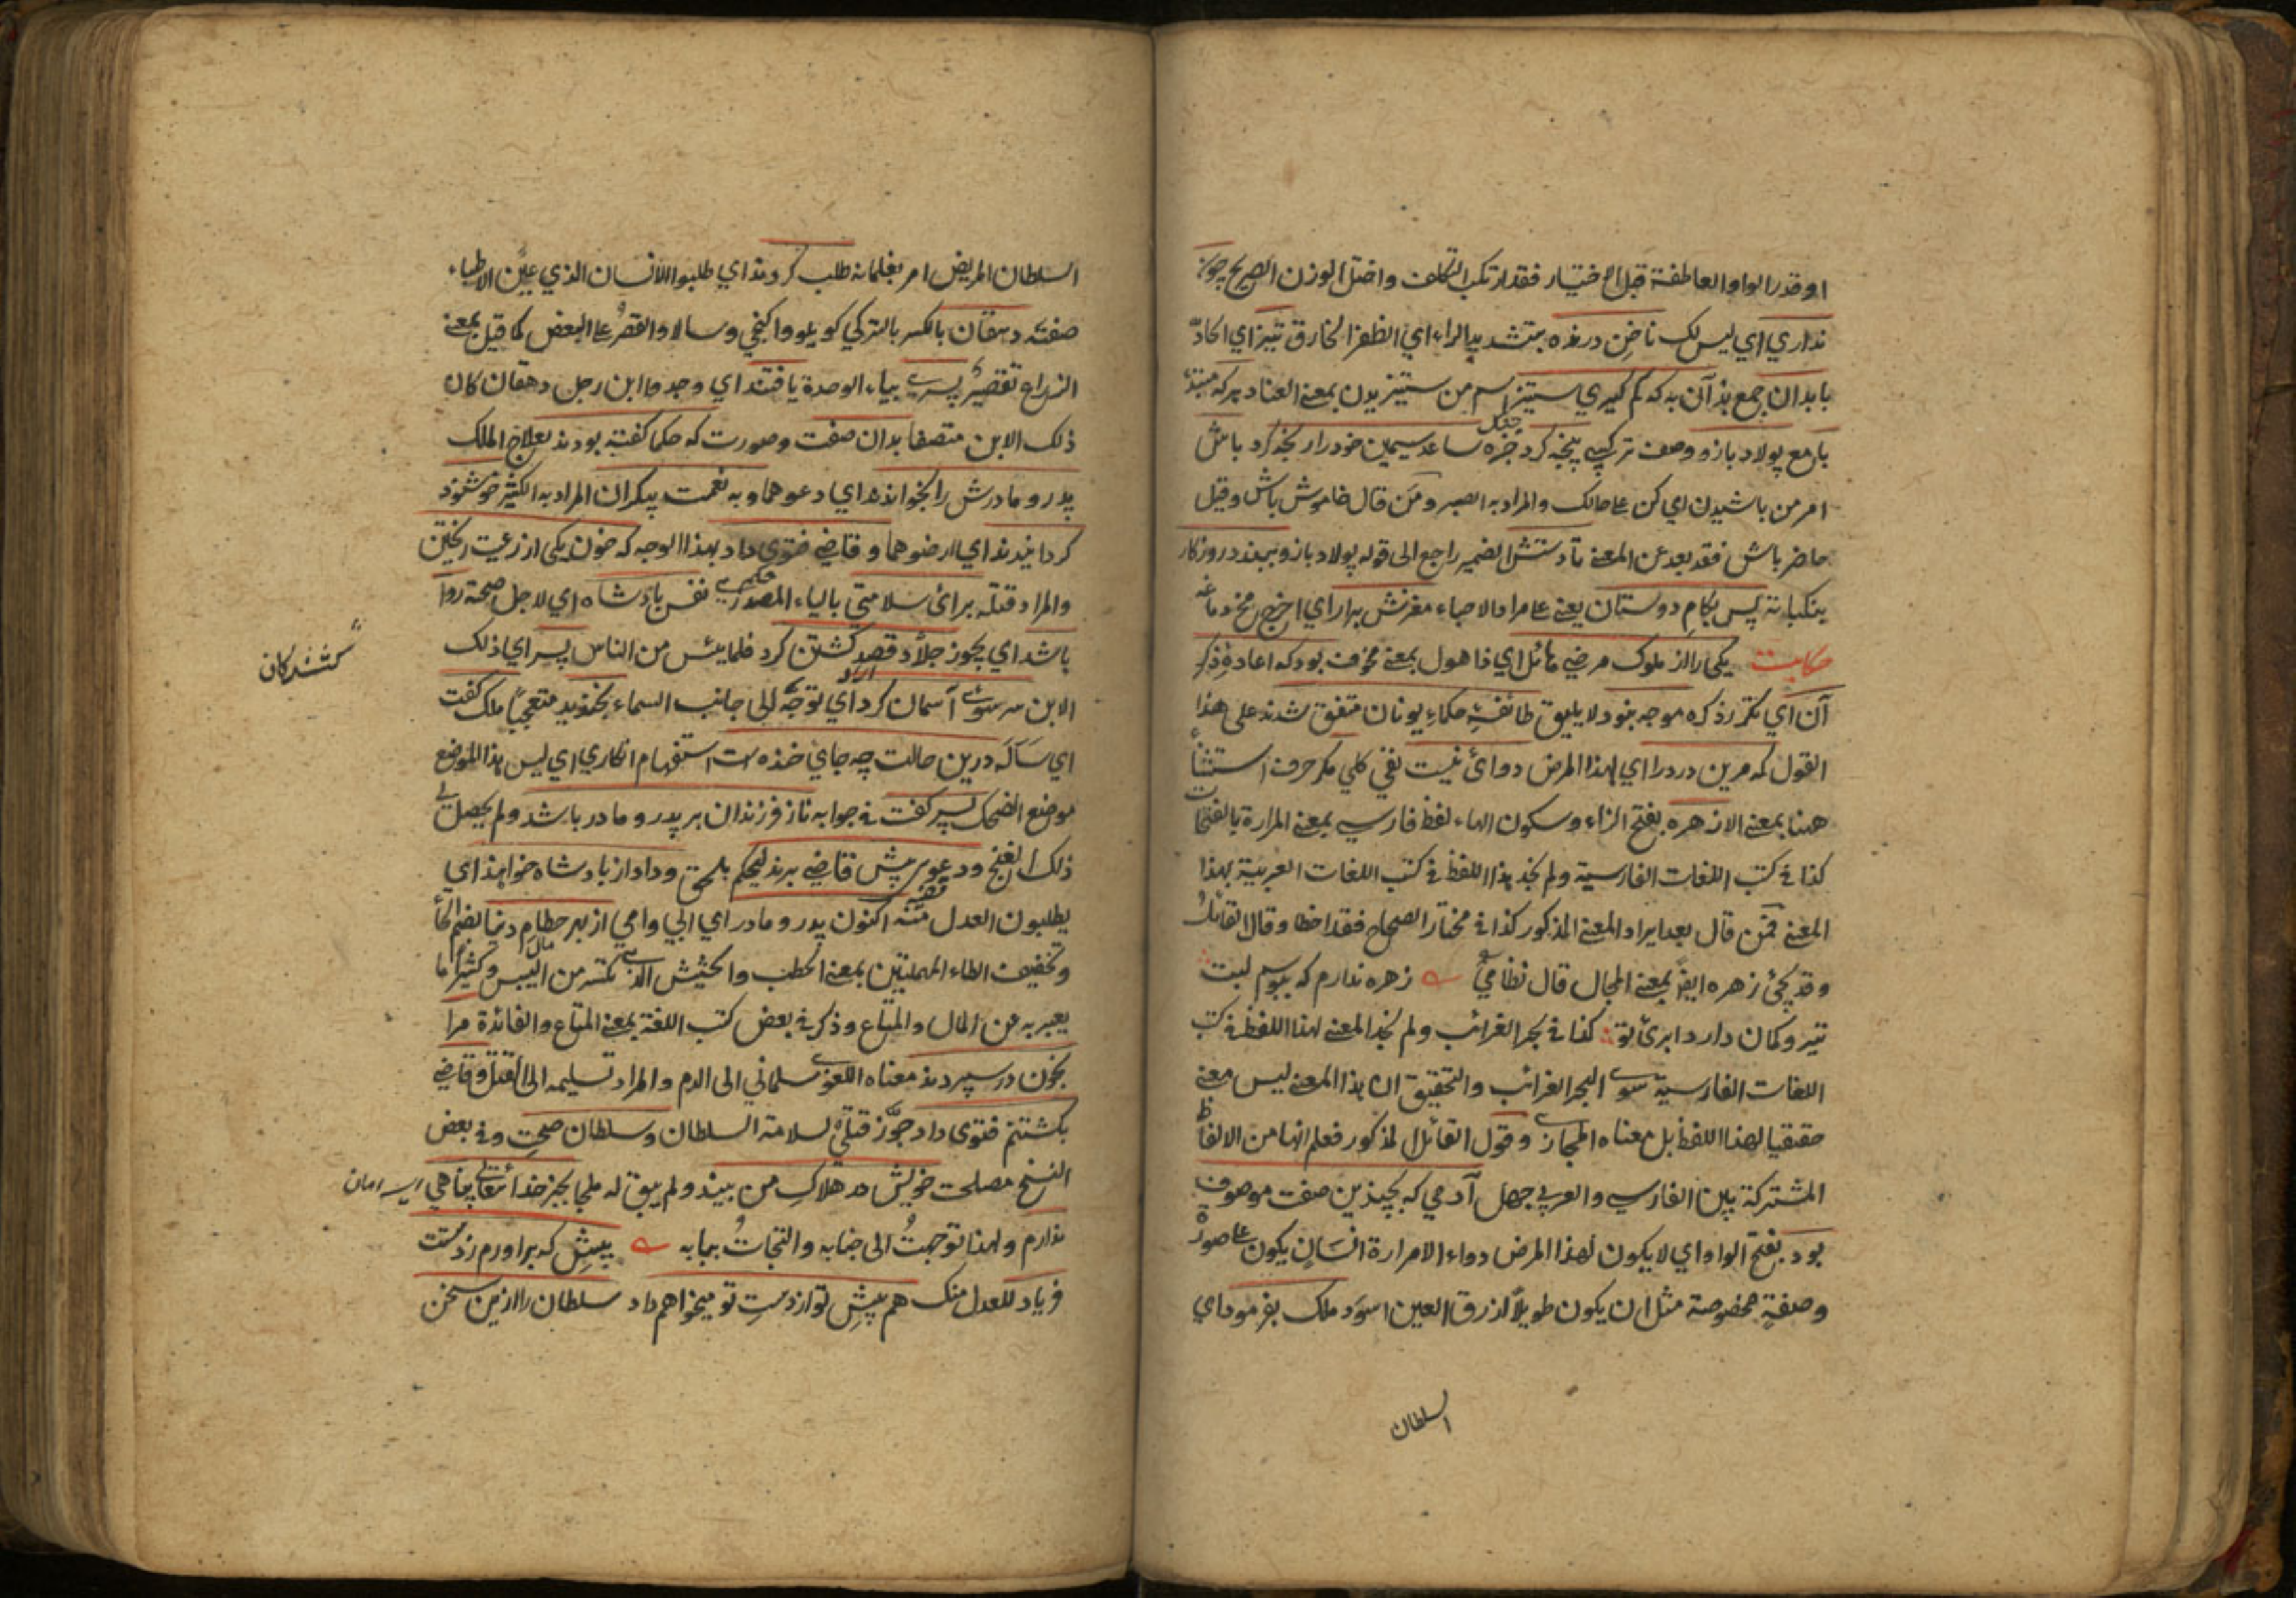 او قدر الواو العاطفة قبل الاختيار فقد ارتكب التكلف واختل الوزن الصريح چون
نداري اي ليس لك ناخن درنده بتشديد الراء اي الظفر الخارق تيز اي الحادّ
با بدان جمع بد آن به كه كم كيري ستيز اسم من ستيزيدن بمعنى العناد هر كه مبتدأ
با مع پولاد بازو وصف تركيبي پنجه كرد جنك ساعد سيمين خود را رنجه كرد باش
امر من باشيدن اي كن على حالك والمراد به الصبر ومن قال خاموش باش وقيل
حاضر باش فقد بعد عن المعنى تا دستش الضمير راجع الى قوله پولاد بازو ببندد روزكار
بنكباته پس بكام دوستان يعني على مراد الاحباء مغزش برآر اي اخرج مخ دماغه
حكايت يكى را از ملوك مرضي هائل اي ذا هول بمعنى مخوف بود كه اعاده ذكر
آن اي تكرر ذكره موجه نبود لا يليق طائفه حكماء يونان متفق شدند على هذا
القول كه مرين درد را اي لهذا المرض دوائ نيست نفي كلي مكر حرف استثناء
ههنا بمعنى الا زهره بفتح الزاء وسكون الهاء لفظ فارسي بمعنى المرارة بالفتحات
كذا في كتب اللغات الفارسية ولم نجد هذا اللفظ في كتب اللغات العربية بهذا
المعنى فمن قال بعد ايراد المعنى المذكور كذا في مختار الصحاح فقد اخطا وقال القائل
وقد يجئ زهره ايضا بمعنى المجال قال نظامي زهره ندارم كه ببوسم لبت
تير وكمان دارد ابروئ تو كذا في بحر الغرائب ولم نجد المعنى لهذا اللفظ في كتب
اللغات الفارسية سوى البحر الغرائب والتحقيق ان هذا المعنى ليس معنى
حقيقيا لهذا اللفظ بل معناه المجازي وقول القائل المذكور فعلم انها من الالفاظ
المشتركة بين الفارسي والعربي جهل آدمي كه بچندين صفت موصوف
بود بفتح الواو اي لا يكون لهذا المرض دواء الا مرارة انسان يكون على صورة
وصفة مخصوصة مثل ان يكون طويلا ازرق العين اسود ملك بفرمود اي
السلطان
السلطان المريض امر بغلمانه طلب كردند اي طلبوا الانسان الذي عيّن الاطباء
صفته دهقان بالكسر بالتركي كويلو واكنجي وسالار والقصر على البعض كما قيل بمعنى
الزراع تقصير پسرى بياء الوحدة يافتند اي وجدوا ابن رجل دهقان كان
ذلك الابن متصفا بدان صفت وصورت كه حكما كفته بودند بعلاج الملك
پدر ومادرش را بخواندند اي دعوهما وبه نعمت بيكران المراد به الكثير خوشنود
كردانيدند اي ارضوهما وقاضي فتوى داد بهذا الوجه كه خون يكى از رعيت ريختن
والمراد قتله برائ سلامتي بالياء المصدرى نفس بادشاه اي لاجل صحته روا
باشد اي يجوز جلاد قصد كشتن كرد فلما يئس من الناس پسر اي ذلك
كشندكان
الابن سر سوى آسمان كرد اي توجه الى جانب السماء بخنديد متعجبا ملك كفت
اي سأله درين حالت چه جاي خنده است استفهام انكاري اي ليس هذا الموضع
موضع الضحك پسر كفت في جوابه ناز فرزندان بر پدر ومادر باشد ولم يحصل لي
ذلك الغنج ودعوى پيش قاضي برند ليحكم بالحق وداد از بادشاه خواهند اي
يطلبون العدل منه اكنون پدر ومادر اي ابي وامي از بهر حطام دنيا بضم الحاء
وتخفيف الطاء المهملتين بمعنى الحطب والحشيش الذي تكسر من اليبس وكثيرا ما
يعبر به عن المال والمتاع وذكر في بعض كتب اللغة بمعنى المتاع والفائدة مرا
بخون در سپردند معناه اللغوى سلماني الى الدم والمراد تسليمه الى القتل وقاضي
بكشتنم فتوى داد جوّز قتلي لسلامة السلطان وسلطان صحت وفي بعض
النسخ مصلحت خويش در هلاك من بيند ولم يبق له ملجا بجز خدا تعالى پناهي اى امان
ندارم ولهذا توجهت الى جنابه والتجات ببابه پيش كه برآورم ز دستت
فرياد للعدل منك هم پيش تو از دست تو ميخواهم داد سلطان را ازين سخن